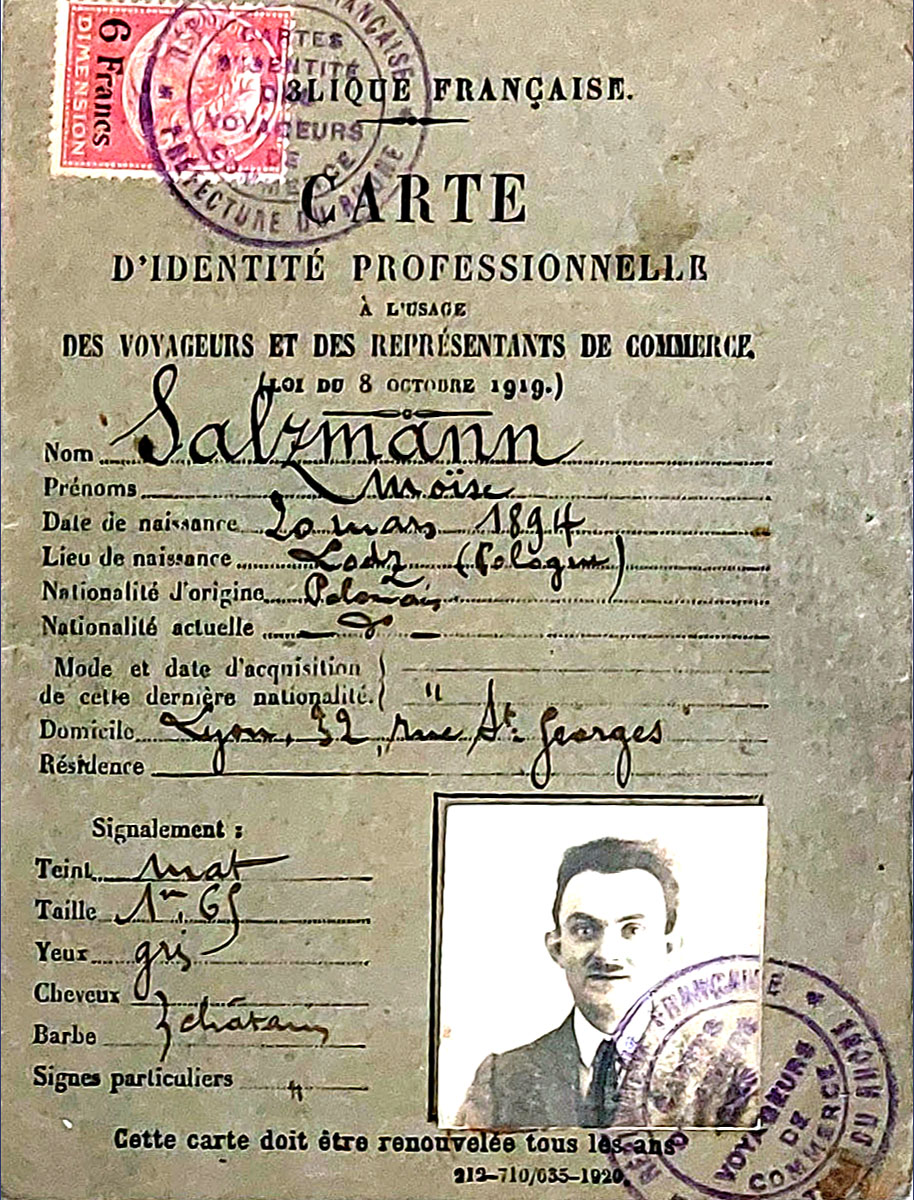 6 Francs
DIMENSION
CARTES
D'IDENTITÉ
VOYAGEURS
DE
COMMERCE
PRÉFECTURE DU RHÔNE
FRANÇAISE
BLIQUE FRANÇAISE.
CARTE
D'IDENTITÉ PROFESSIONNELLE
À L'USAGE
DES VOYAGEURS ET DES REPRÉSENTANTS DE COMMERCE.
(LOI DU 8 OCTOBRE 1919.)
Nom Salzmann
Prénoms Moïse
Date de naissance 20 mars 1894
Lieu de naissance Lodz (Pologne)
Nationalité d'origine Polonais
Nationalité actuelle — do —
Mode et date d'acquisition
de cette dernière nationalité. "
Domicile Lyon, 32, rue St. Georges
Résidence
Signalement :
Teint mat
Taille 1m,65
Yeux gris
Cheveux } châtain
Barbe
Signes particuliers "
FRANÇAISE
VOYAGEURS
DE
COMMERCE
DU RHÔNE
Cette carte doit être renouvelée tous les ans
212-710/635-1920.